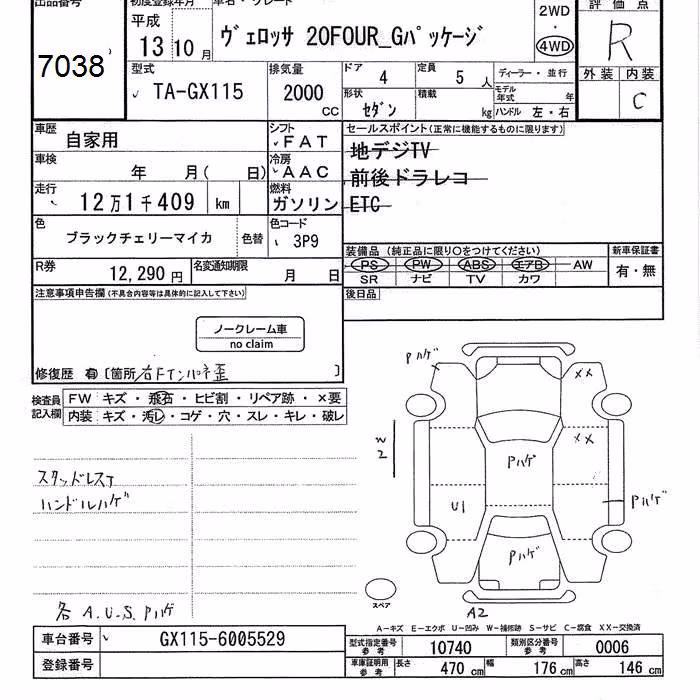 出品番号 初度登録年月 車名・グレード 評価点
7038 平成 13 10月 ヴェロッサ 20FOUR_Gパッケージ 2WD 4WD R
型式 排気量 ドア 4 定員 5人 ディーラー・並行 外装 内装
TA-GX115 2000 CC 形状 セダン 積載 kg モデル年式 年 ハンドル 左・右 C
車歴 自家用 シフト FAT セールスポイント(正常に機能するものに限ります)
車検 年 月( 日) 冷房 AAC 地デジTV
走行 12万1千409 km 燃料 ガソリン 前後ドラレコ
ETC
色 ブラックチェリーマイカ 色替 色コード 3P9
装備品(純正品に限り○をつけてください) 新車保証書
R券 12,290円 名変通知期限 月 日 PS PW ABS エアB AW 有・無
SR ナビ TV カワ
注意事項申告欄(不具合内容等は具体的に記入して下さい) 後日品
ノークレーム車
no claim
修復歴 有 [箇所 右Fインパネ歪 ]
検査員記入欄 FW キズ・飛石・ヒビ割・リペア跡・×要
内装 キズ・汚レ・コゲ・穴・スレ・キレ・破レ
Pハゲ
××
W2
××
Pハゲ
スタッドレスT
ハンドルハゲ
U1
Pハゲ
Pハゲ
スペア
A2
各 A.U.S.Pハゲ
A-キズ E-エクボ U-凹み W-補修跡 S-サビ C-腐食 XX-交換済
車台番号 GX115-6005529 型式指定番号 参考 10740 類別区分番号 参考 0006
登録番号 車庫証明用 参考 長さ 470 cm 幅 176 cm 高さ 146 cm